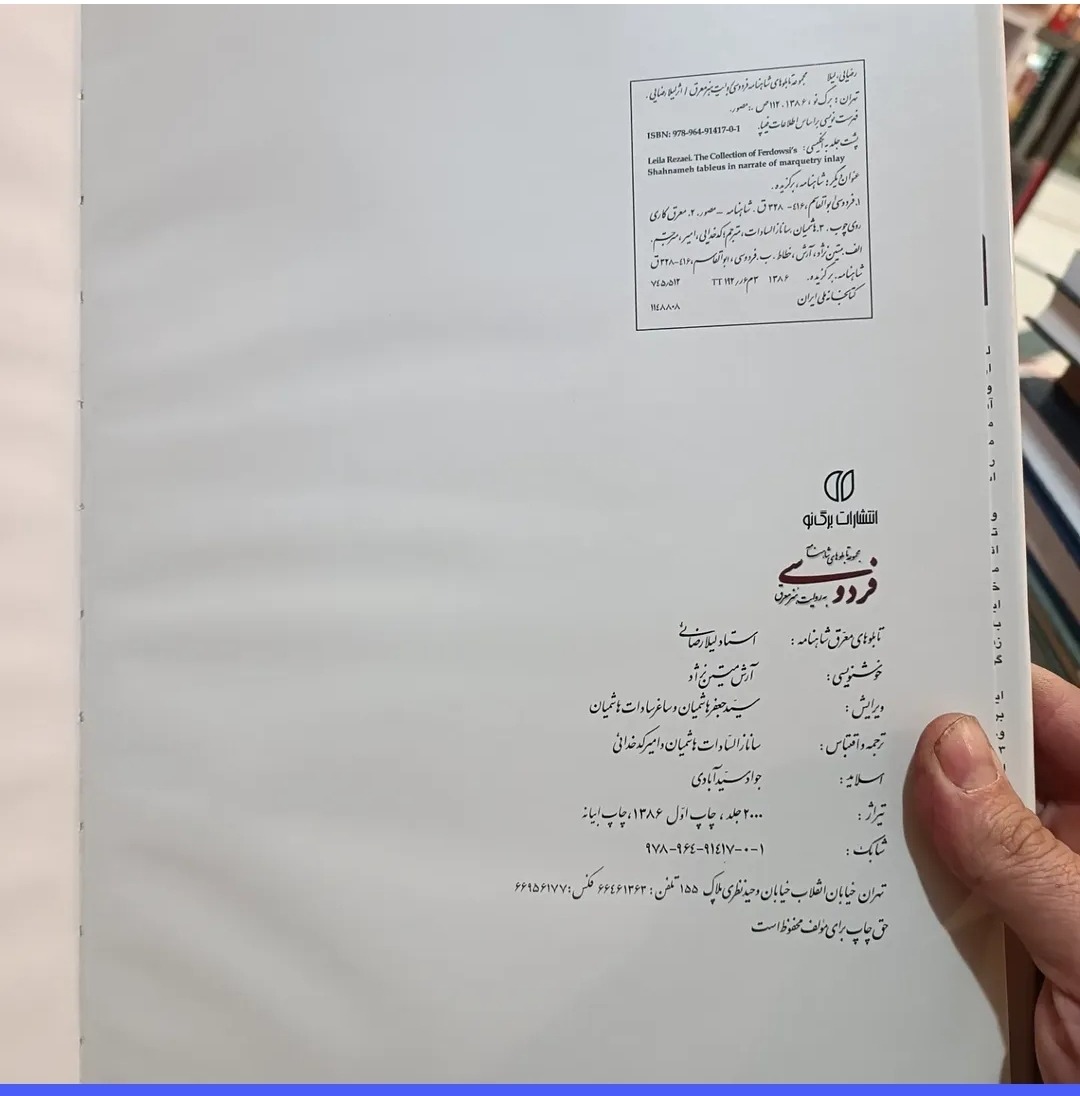 رضایی، لیلا
مجموعه تابلوهای شاهنامه فردوسی به روایت هنر معرق / اثر لیلا رضایی.
تهران: برگ نو، ۱۳۸۶. ۱۱۲ص.: مصور.
فهرست نویسی براساس اطلاعات فیپا. ISBN: 978-964-91417-0-1
پشت جلد به انگلیسی: Leila Rezaei. The Collection of Ferdowsi's
Shahnameh tableus in narrate of marquetry inlay
عنوان دیگر: شاهنامه، برگزیده.
۱. فردوسی، ابوالقاسم، ۴۱۶- ۳۲۸ ق. شاهنامه – مصور. ۲. معرق کاری
روی چوب. ۳. هاشمیان، ساناز السادات، مترجم؛ کدخدایی، امیر، مترجم.
الف. متین نژاد، آرش، خطاط. ب. فردوسی، ابوالقاسم، ۴۱۶-۳۲۸ ق
شاهنامه. برگزیده. ۱۳۸۶ ۳م۶ر/ TT ۱۹۲ ۷۴۵/۵۱۲
کتابخانه ملی ایران ۱۱۴۸۸۰۸
انتشارات برگ نو
مجموعه تابلوهای شاهنامه
فردوسی
به روایت هنر معرق
تابلوهای معرّق شاهنامه: استاد لیلا رضائی
خوشنویسی: آرش متین نژاد
ویرایش: سیّد جعفر هاشمیان و ساغر سادات هاشمیان
ترجمه و اقتباس: ساناز السّادات هاشمیان و امیر کدخدائی
اسلاید: جواد سیّدآبادی
تیراژ: ۲۰۰۰ جلد، چاپ اوّل ۱۳۸۶، چاپ ابیانه
شابک: ۹۷۸-۹۶۴-۹۱۴۱۷-۰-۱
تهران خیابان انقلاب خیابان وحید نظری پلاک ۱۵۵ تلفن: ۶۶۴۶۱۳۶۳ فکس: ۶۶۹۵۶۱۷۷
حق چاپ برای مؤلف محفوظ است